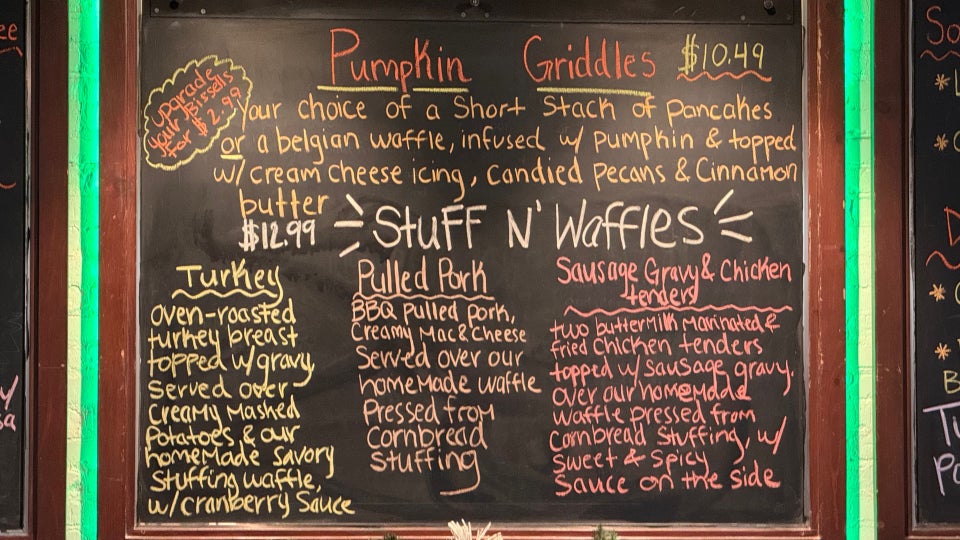 Pumpkin Griddles $10.49
uparade
your Bissells
for $2.99
Your choice of a Short Stack of Pancakes
or a belgian waffle, infused w/ pumpkin & topped
w/ cream cheese icing, candied pecans & Cinnamon
butter
$12.99 Stuff N' Waffles
Turkey
oven-roasted
turkey breast
topped w/gravy,
Served over
Creamy Mashed
Potatoes, & our
homemade Savory
Stuffing waffle,
w/cranberry Sauce
Pulled Pork
BBQ pulled pork,
Creamy Mac & Cheese
Served over our
homemade waffle
Pressed from
Cornbread
Stuffing
Sausage Gravy & Chicken
tenders
two buttermilk marinated &
fried chicken tenders
topped w/ sausage gravy.
over our homemade
waffle pressed from
Cornbread Stuffing, w/
Sweet & Spicy
Sauce on the side